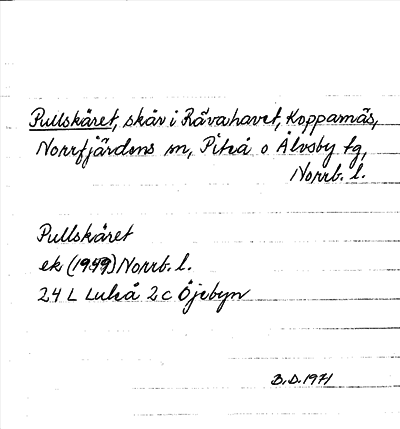 Pullskäret, skär i Rävahavet, Koppamäs,
Norrfjärdens sn, Piteå o Älvsby tg,
Norrb. l.
Pullskäret
ek (1949) Norrb. l.
24 L Luleå 2c Öjebyn
B.D. 1971